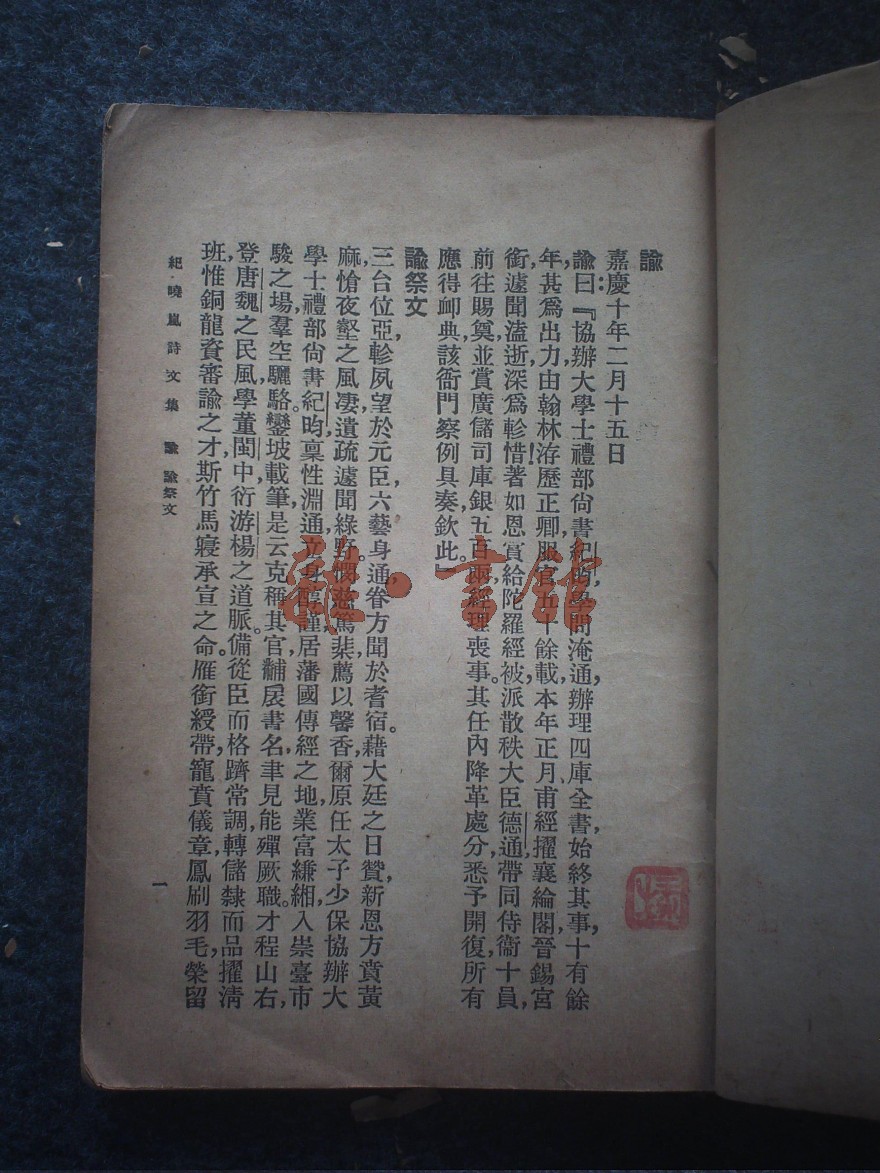 諭
嘉慶十年二月十五日
諭曰：『協辦大學士禮部尙書紀昀，學問淹通，辦理四庫全書，始終其事，十有餘
年，甚爲出力，由翰林洊歷正卿，服官五十餘載，本年正月甫經擢襄綸閣，晉錫宮
銜，遽聞溘逝，深爲軫惜！著如恩賞給陀羅經被，派散秩大臣德通，帶同侍衞十員，
前往賜奠，並賞廣儲司庫銀五百兩，經理喪事。其任內降革處分，悉予開復，所有
應得卹典，該衙門察例具奏，欽此』
諭祭文
三台位亞，軫夙望於元臣，六藝身通，眷方聞於耆宿。藉大廷之日贊，新恩方賁黃
麻，愴夜壑之風凄，遺疏遽聞綠野。憫慈篤棐，薦以馨香，爾原任太子少保協辦大
學士禮部尙書紀昀，稟性淵通，立身醇謹，居藩國傳經之地，業富縑緗，入崇臺市
駿之場，羣空驪駱。鑾坡載筆，是云克稱其官，黼扆書名，聿見能殫厥職。才程山右，
登唐魏之民風，學董閩中，衍游楊之道脈。備從臣而格躋常調，轉儲隸而品擢淸
班，惟銅龍資審諭之才，斯竹馬寢承宣之命。雁銜綬帶，寵賁儀章，鳳刷羽毛，榮留
紀曉嵐詩文集　諭　諭祭文
一
雜·書館